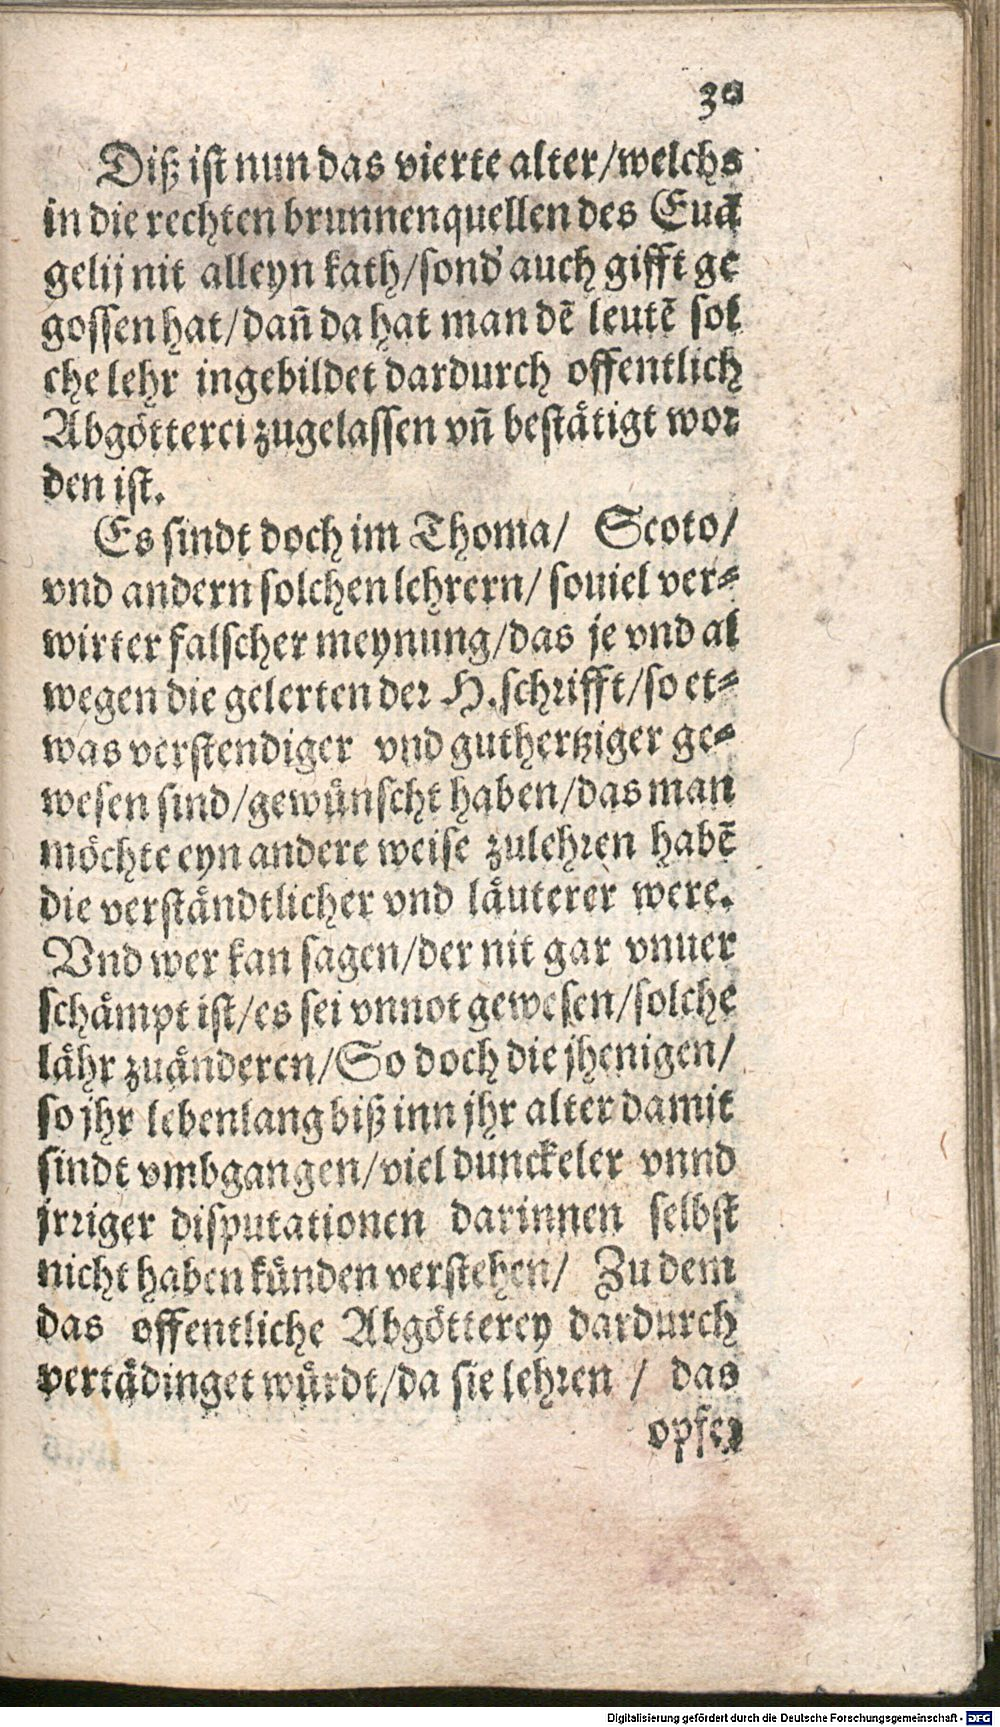 30
Diß ist nun das vierte alter/welchs
in die rechten brunnenquellen des Euã
gelij nit alleyn kath/sond' auch gifft ge
gossen hat/dañ da hat man dẽ leutẽ sol
che lehr ingebildet dardurch offentlich
Abgötterei zugelassen vñ bestätigt wor
den ist.
Es sindt doch im Thoma/ Scoto/
vnd andern solchen lehrern/ souiel ver⸗
wirter falscher meynung/das je vnd al
wegen die gelerten der H.schrifft/so et⸗
was verstendiger vnd guthertziger ge⸗
wesen sind/gewünscht haben/das man
möchte eyn andere weise zulehren habẽ
die verständtlicher vnd läuterer were.
Vnd wer kan sagen/der nit gar vnuer
schämpt ist/es sei vnnot gewesen/solche
lähr zuänderen/So doch die jhenigen/
so jhr lebenlang biß inn jhr alter damit
sindt vmbgangen/viel dunckeler vnnd
jrriger disputationen darinnen selbst
nicht haben künden verstehen/ Zu dem
das offentliche Abgötterey dardurch
vertädinget würdt/da sie lehren / das
opfer
Digitalisierung gefördert durch die Deutsche Forschungsgemeinschaft - DFG